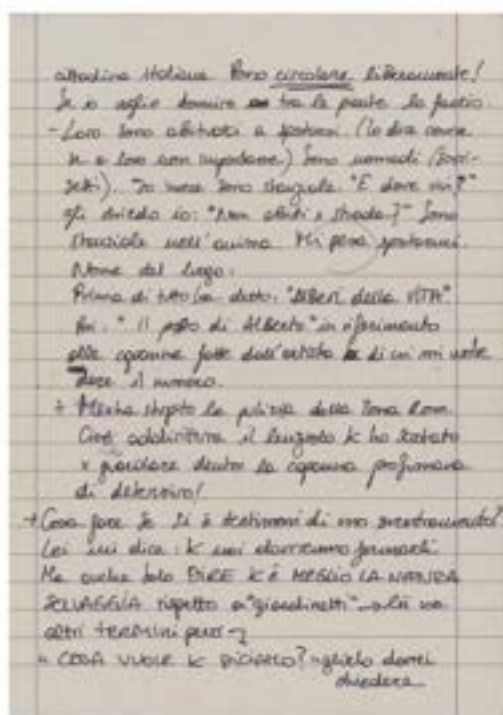 cittadina italiana. Posso circolare liberamente!
Se io voglio dormire tra le piante lo faccio.
- Loro sono abituati a spostarsi. (lo dice come
se a loro non importasse) Sono nomadi (sorri-
setti). Io invece sono stanziale. "E dove vivi?"
gli chiedo io: "Non abiti x strada?" Sono
stanziale nell'anima. Mi pesa spostarmi.
Nome del luogo.
Prima di tutto ha detto: "Alberi della VITA"
Poi: " Il posto di Alberto" in riferimento
alle capanne fatte dall'artista di cui mi vuole
dare il numero.
+ Mi ha stupito la pulizia della zona Rom.
Cioè addirittura il lenzuolo k ho scostato
x guardare dentro la capanna profumava
di detersivo!
→ Cosa fare se si è testimoni di uno
Lei mi dice: k noi dovremmo fermarli.
Ma anche solo DIRE K È MEGLIO LA
SELVAGGIA rispetto a "giardinetti" → lei usa
altri termini però
" COSA VUOLE K DICIAMO? " glielo dovrei
chiedere